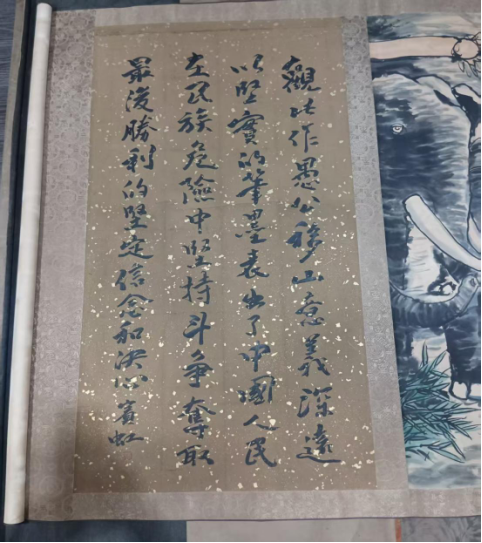 觀此作愚公移山意義深遠
以堅實的筆墨表出了中國人民
在民族危險中堅持斗爭奪取
最後勝利的堅定信念和決心 賓虹